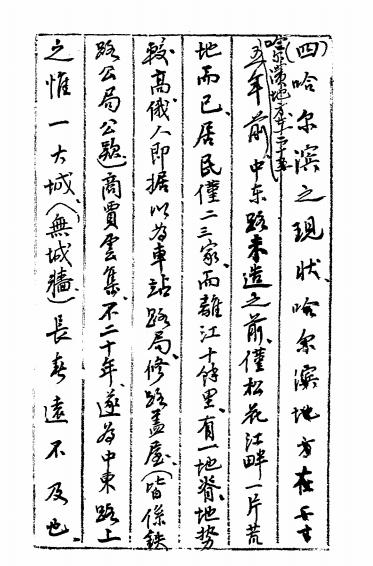 (四)哈尔滨之現狀、哈尔濱地方在
五年前、中东路未造之前、僅松花江畔一片荒
地而已、居民僅二三家、而離江十餘里、有一地脊、地势
較高、俄人即据以為車站路局、修路盖屋、(皆係鉄
路公局公)商賈雲集、不二十年、遂為中東路上
之惟一大城、(無城牆)長春遠不及也、